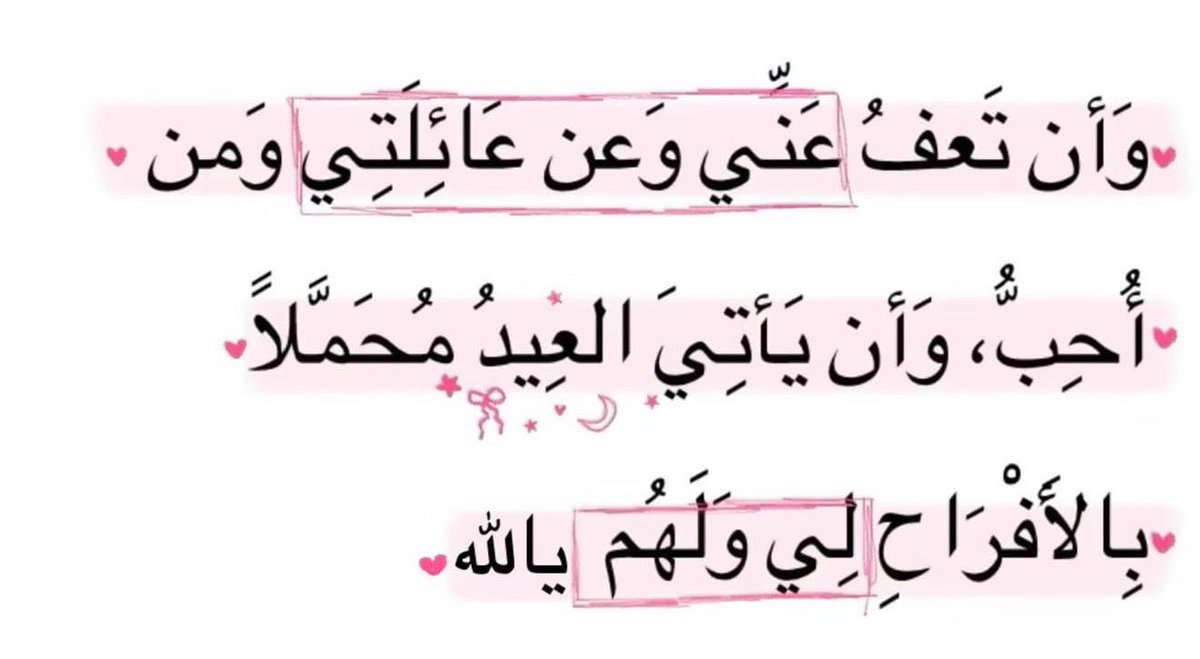 وَأن تَعفُ عَنِّي وَعن عَائِلَتِي وَمن
أُحِبُّ، وَأن يَأتِيَ العِيدُ مُحَمَّلاً
بِالأَفْرَاحِ لِي وَلَهُم يالله